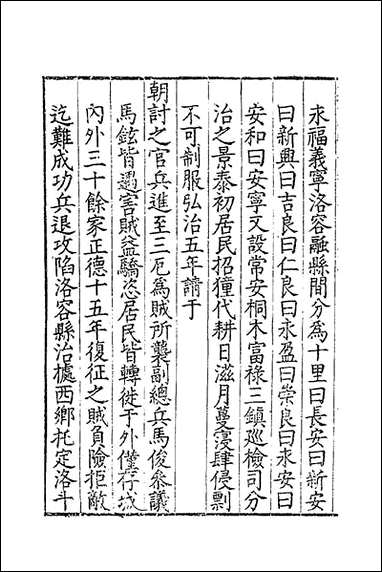 永福義寧洛容融縣間分為十里曰長安曰新安
曰新興曰吉良曰仁良曰永盈曰崇良曰永安曰
安和曰安寧又設常安桐木富祿三鎮廵檢司分
治之景泰初居民招獞代耕日滋月蔓寖肆侵剽
不可制服弘治五年請于
朝討之官兵進至三厄為賊所襲副總兵馬俊叅議
馬鉉皆遇害賊益驕恣居民皆轉徙于外僅存城
內外三十餘家正德十五年復征之賊負險拒敵
迄難成功兵退攻陷洛容縣治據西鄉托定洛斗